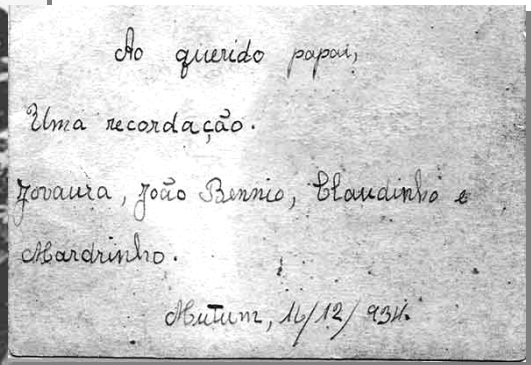 Ao querido papai,
Uma recordação.
Jovaura, João Bennio, Claudinho e
Mardrinho.
Mutum, 16/12/934.